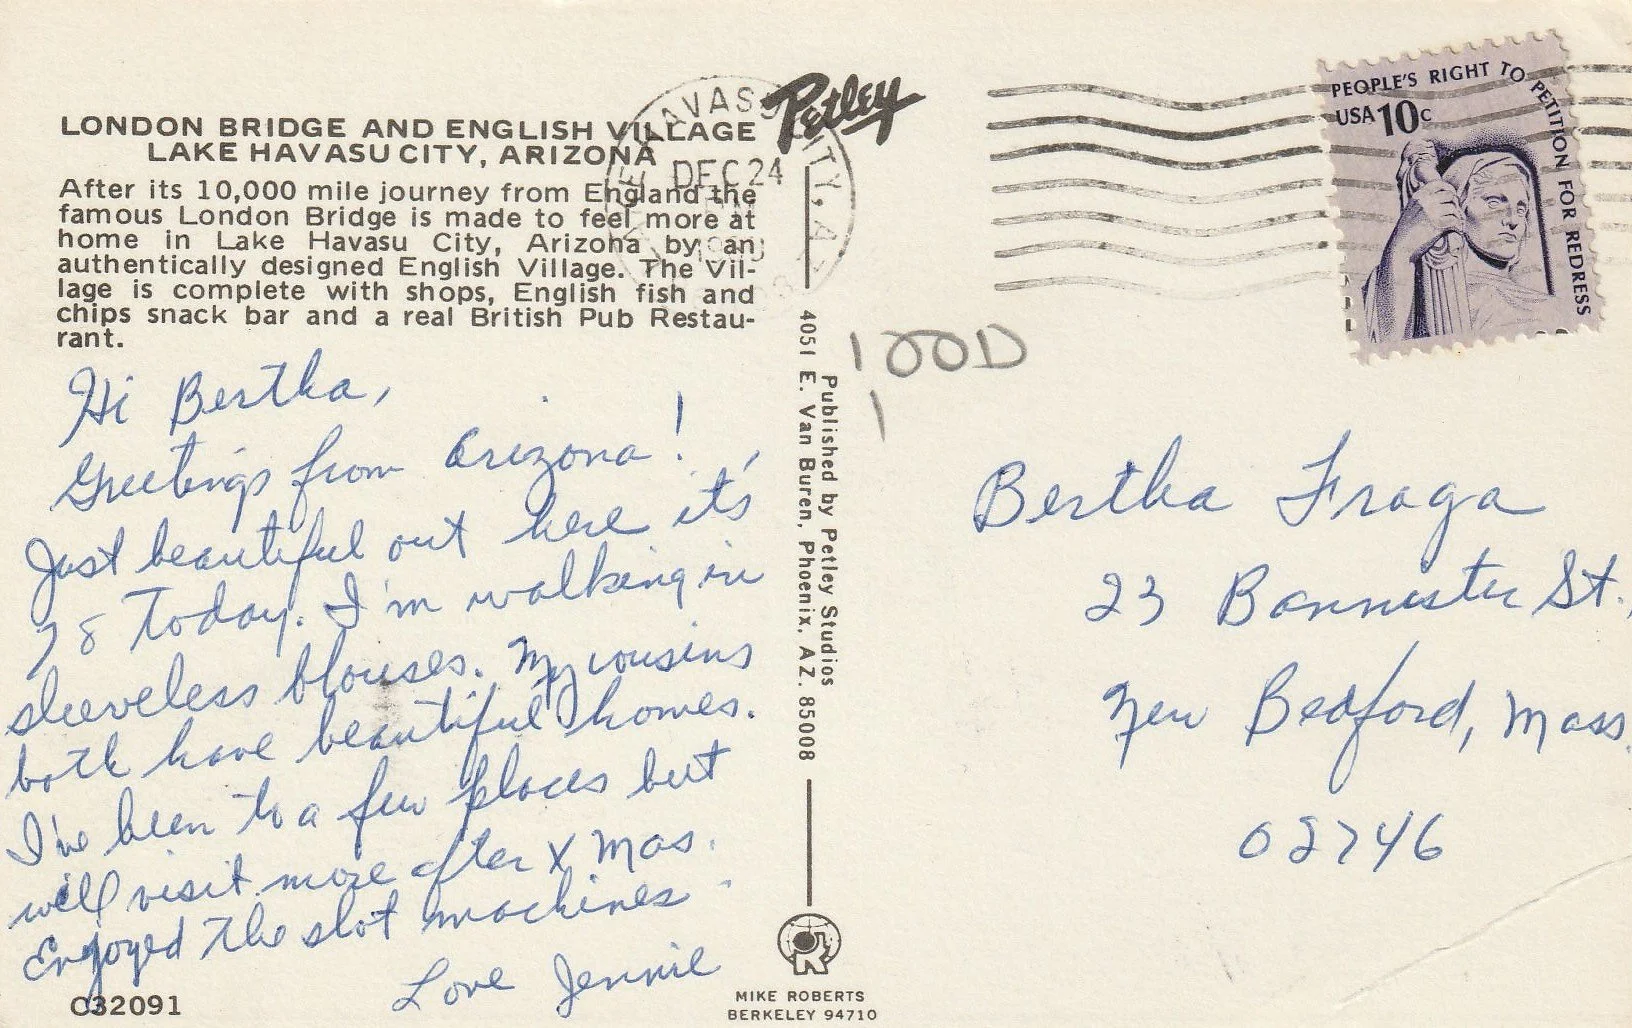 LONDON BRIDGE AND ENGLISH VILLAGE
LAKE HAVASU CITY, ARIZONA
After its 10,000 mile journey from England the
famous London Bridge is made to feel more at
home in Lake Havasu City, Arizona by an
authentically designed English Village. The Vil-
lage is complete with shops, English fish and
chips snack bar and a real British Pub Restau-
rant.
Hi Bertha,
Greetings from Arizona!
Just beautiful out here it's
78 Today. I'm walking in
sleeveless blouses. My cousins
both have beautiful homes.
I've been to a few places but
will visit more after X Mas.
Enjoyed the slot machines.
Love Jennie
C32091
Petley
HAVASU CITY, A
DEC 24
Published by Petley Studios
4051 E. Van Buren, Phoenix, AZ. 85008
MIKE ROBERTS
BERKELEY 94710
PEOPLE'S RIGHT TO PETITION FOR REDRESS
USA 10c
100D
1
Bertha Fraga
23 Bannister St.,
New Bedford, Mass.
02746